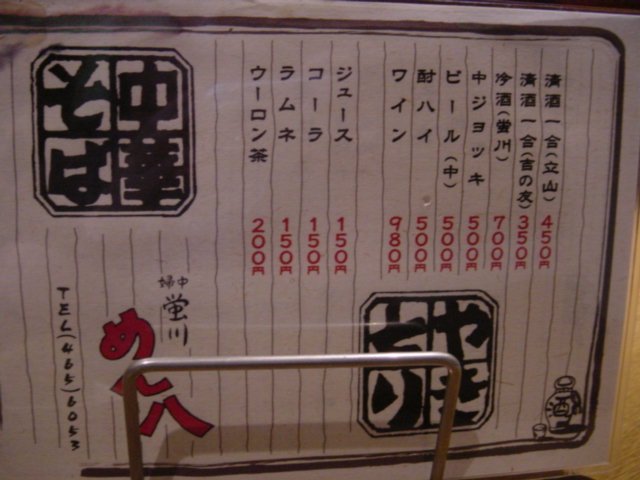 清酒一合(立山) 450円
清酒一合(吉の友) 350円
冷酒(蛍川) 700円
中ジョッキ 500円
ビール(中) 500円
酎ハイ 500円
ワイン 980円
ジュース 150円
コーラ 150円
ラムネ 150円
ウーロン茶 200円
やきとり
酒
中華そば
婦中
蛍川
めん八
TEL(465)6053